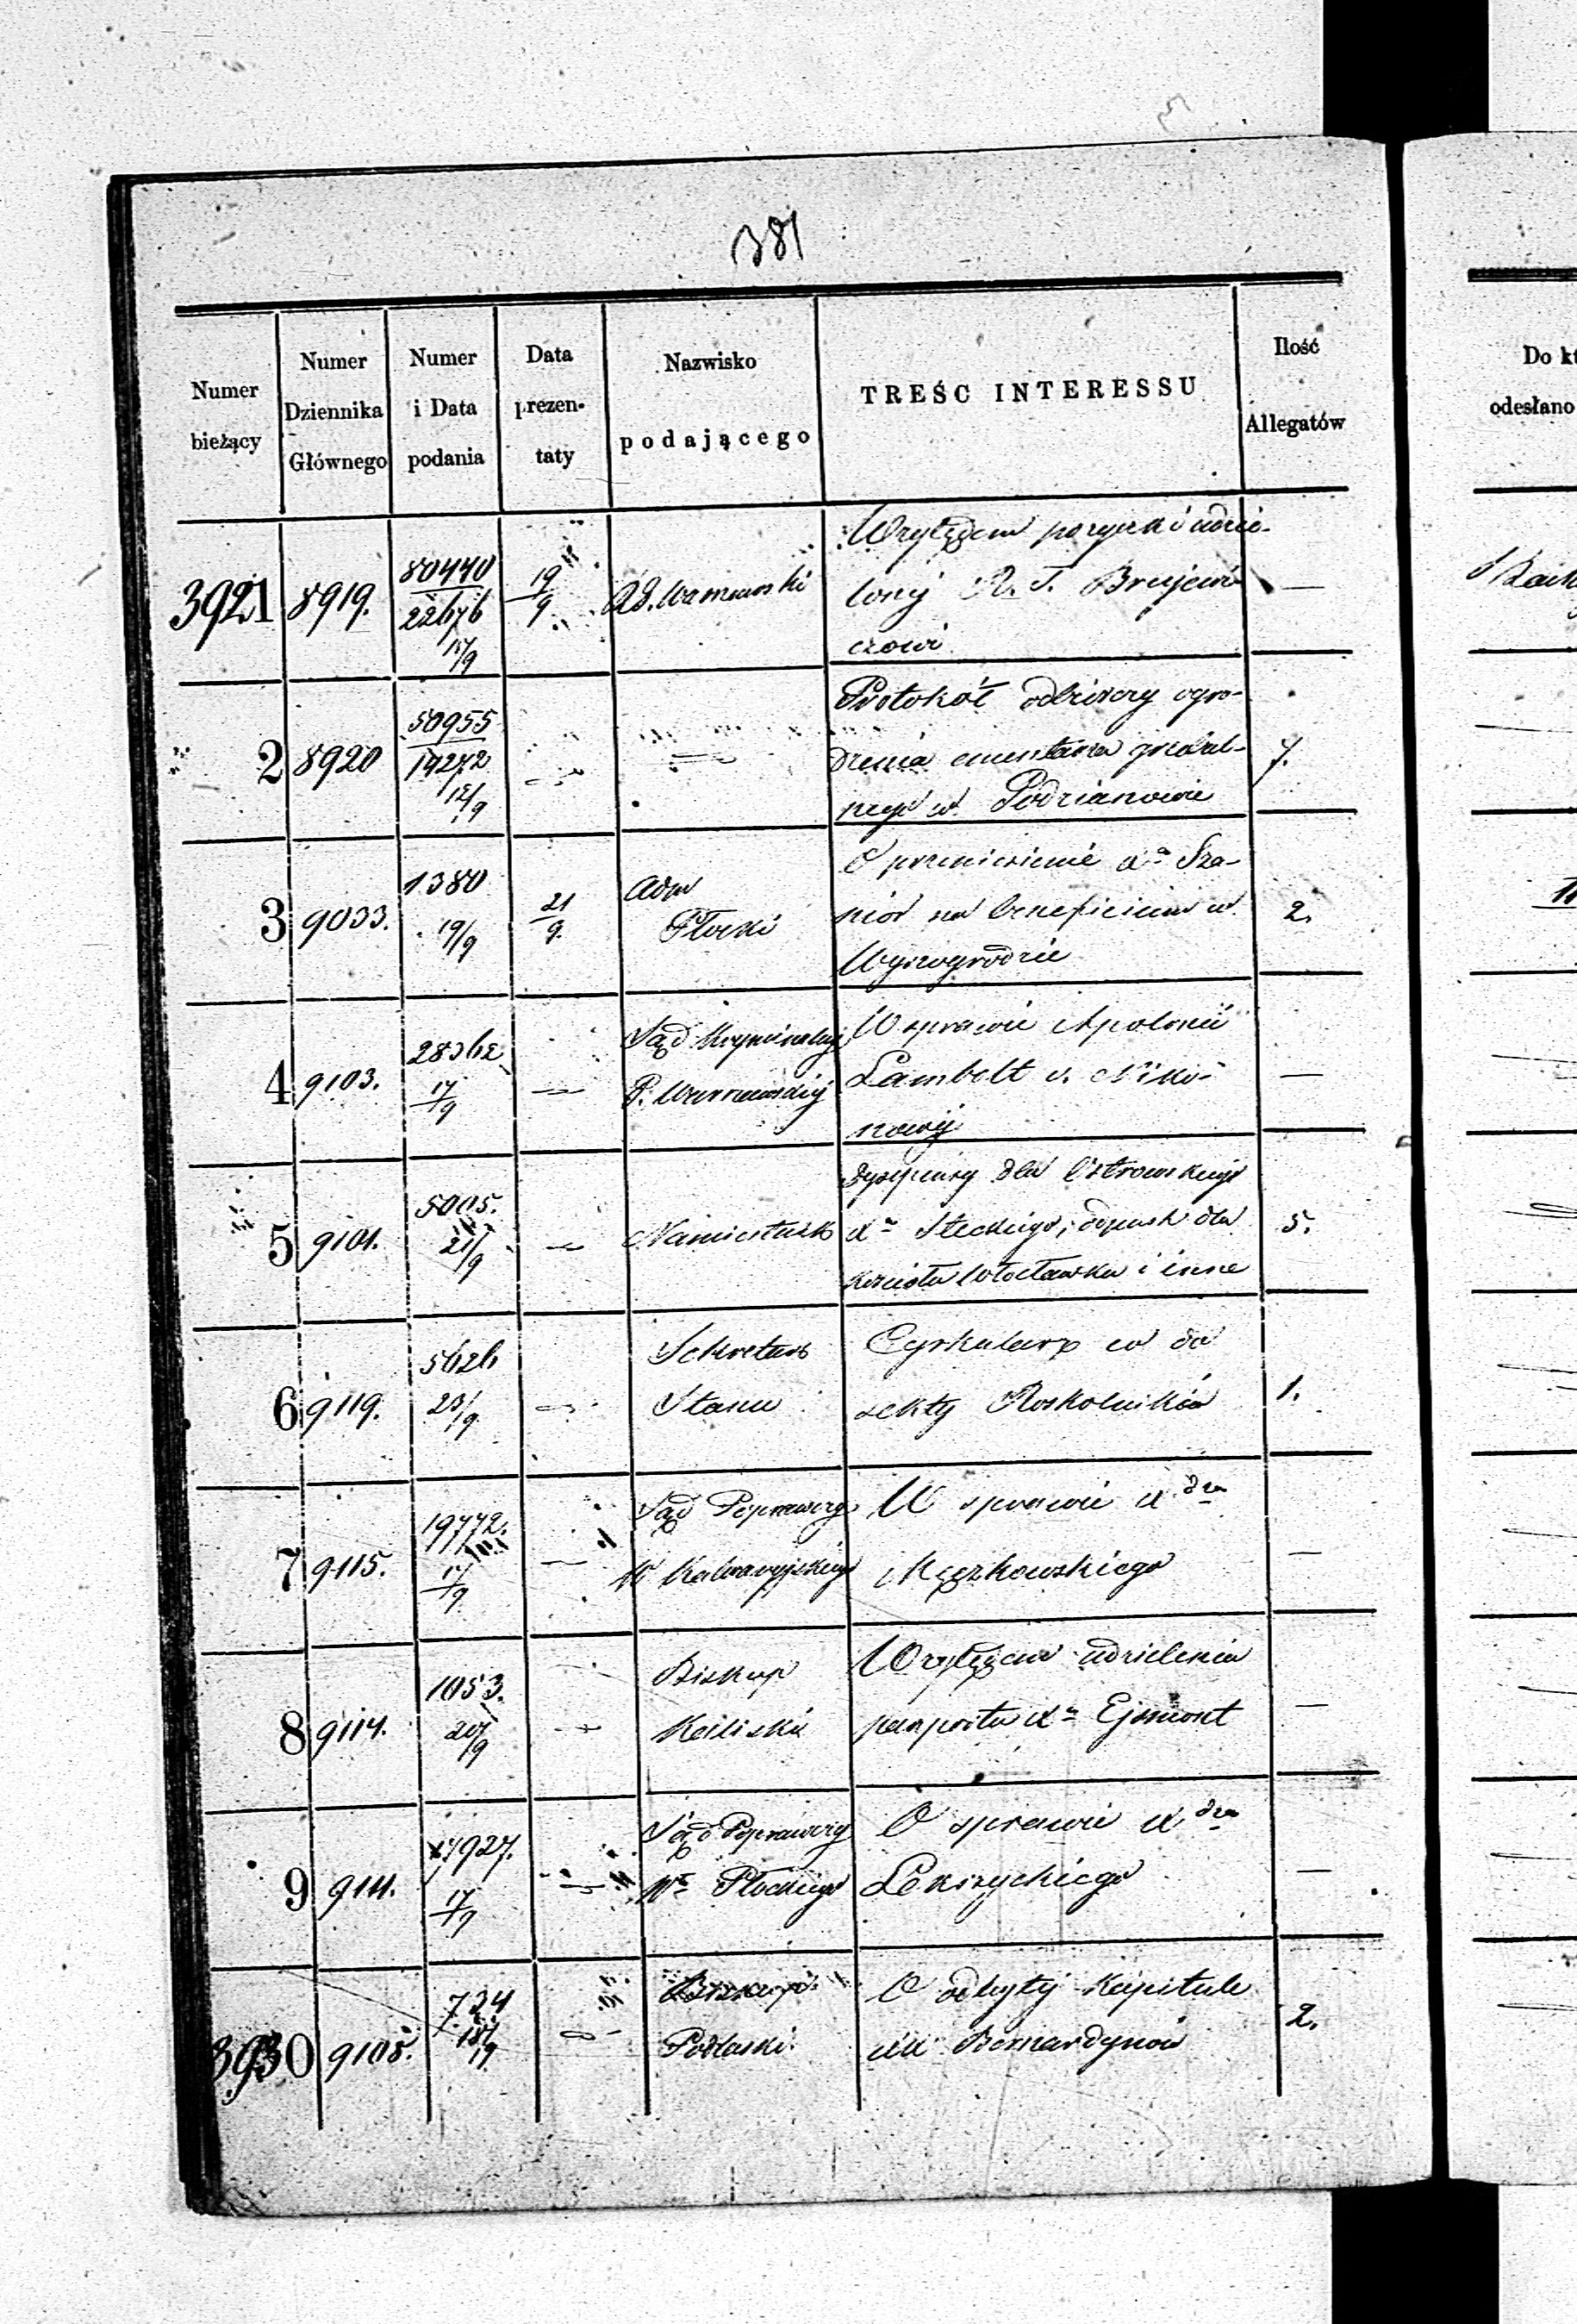 381
Numer bieżący
Numer Dziennika Głównego
Numer i Data podania
Data prezentaty
Nazwisko podającego
TREŚĆ INTERESSU
Ilość Allegatów
Do kt
odesłano
3921 8919. 80440 19/9
Względem pożyczki udzie-
lonej R. T. Brujewi
czowi —
2 8920 50955
Protokół odbiorczy ogro-
dzenia cmentarza grzebal-
nego w Podzianowie 7.
3 9033. 1380 19/9 21/9. Adm Płocki
O przeniesienie Xa Sza-
niór na beneficium w 2.
Wyszogrodzie
4 9103. 28362 17/9 — Sąd Kryminalny P. Warszawskiej
W sprawie Apolonii
Lambolt v. Niko- —
nowej
5 9101. 5005. 21/9 — Namiestnik
dla Ostrowskiego
Xa Steckiego, odpust dla 5.
kościoła Włocławka i inne
6 9119. 5626 23/9 — Sekretarz Stanu
Cyrkularz co do
sekty Roskolników 1.
7 9115. 19772. 17/9 — Sąd Poprawczy W Kalwaryjskiego
W sprawie X dza
Męczkowskiego —
8 9114. 1053. 20/9 — Biskup Kaliski
Względem udzielenia
paszportu Xa Ejsmont —
9 9111. 7927. 17/9 — Sąd Poprawczy Wu Płockiego
O sprawie X dza
Lekszyckiego —
3930 9108. 734 18/9 — Biskup Podlaski.
O odbytej Kapitule
XX Bernardynów 2.